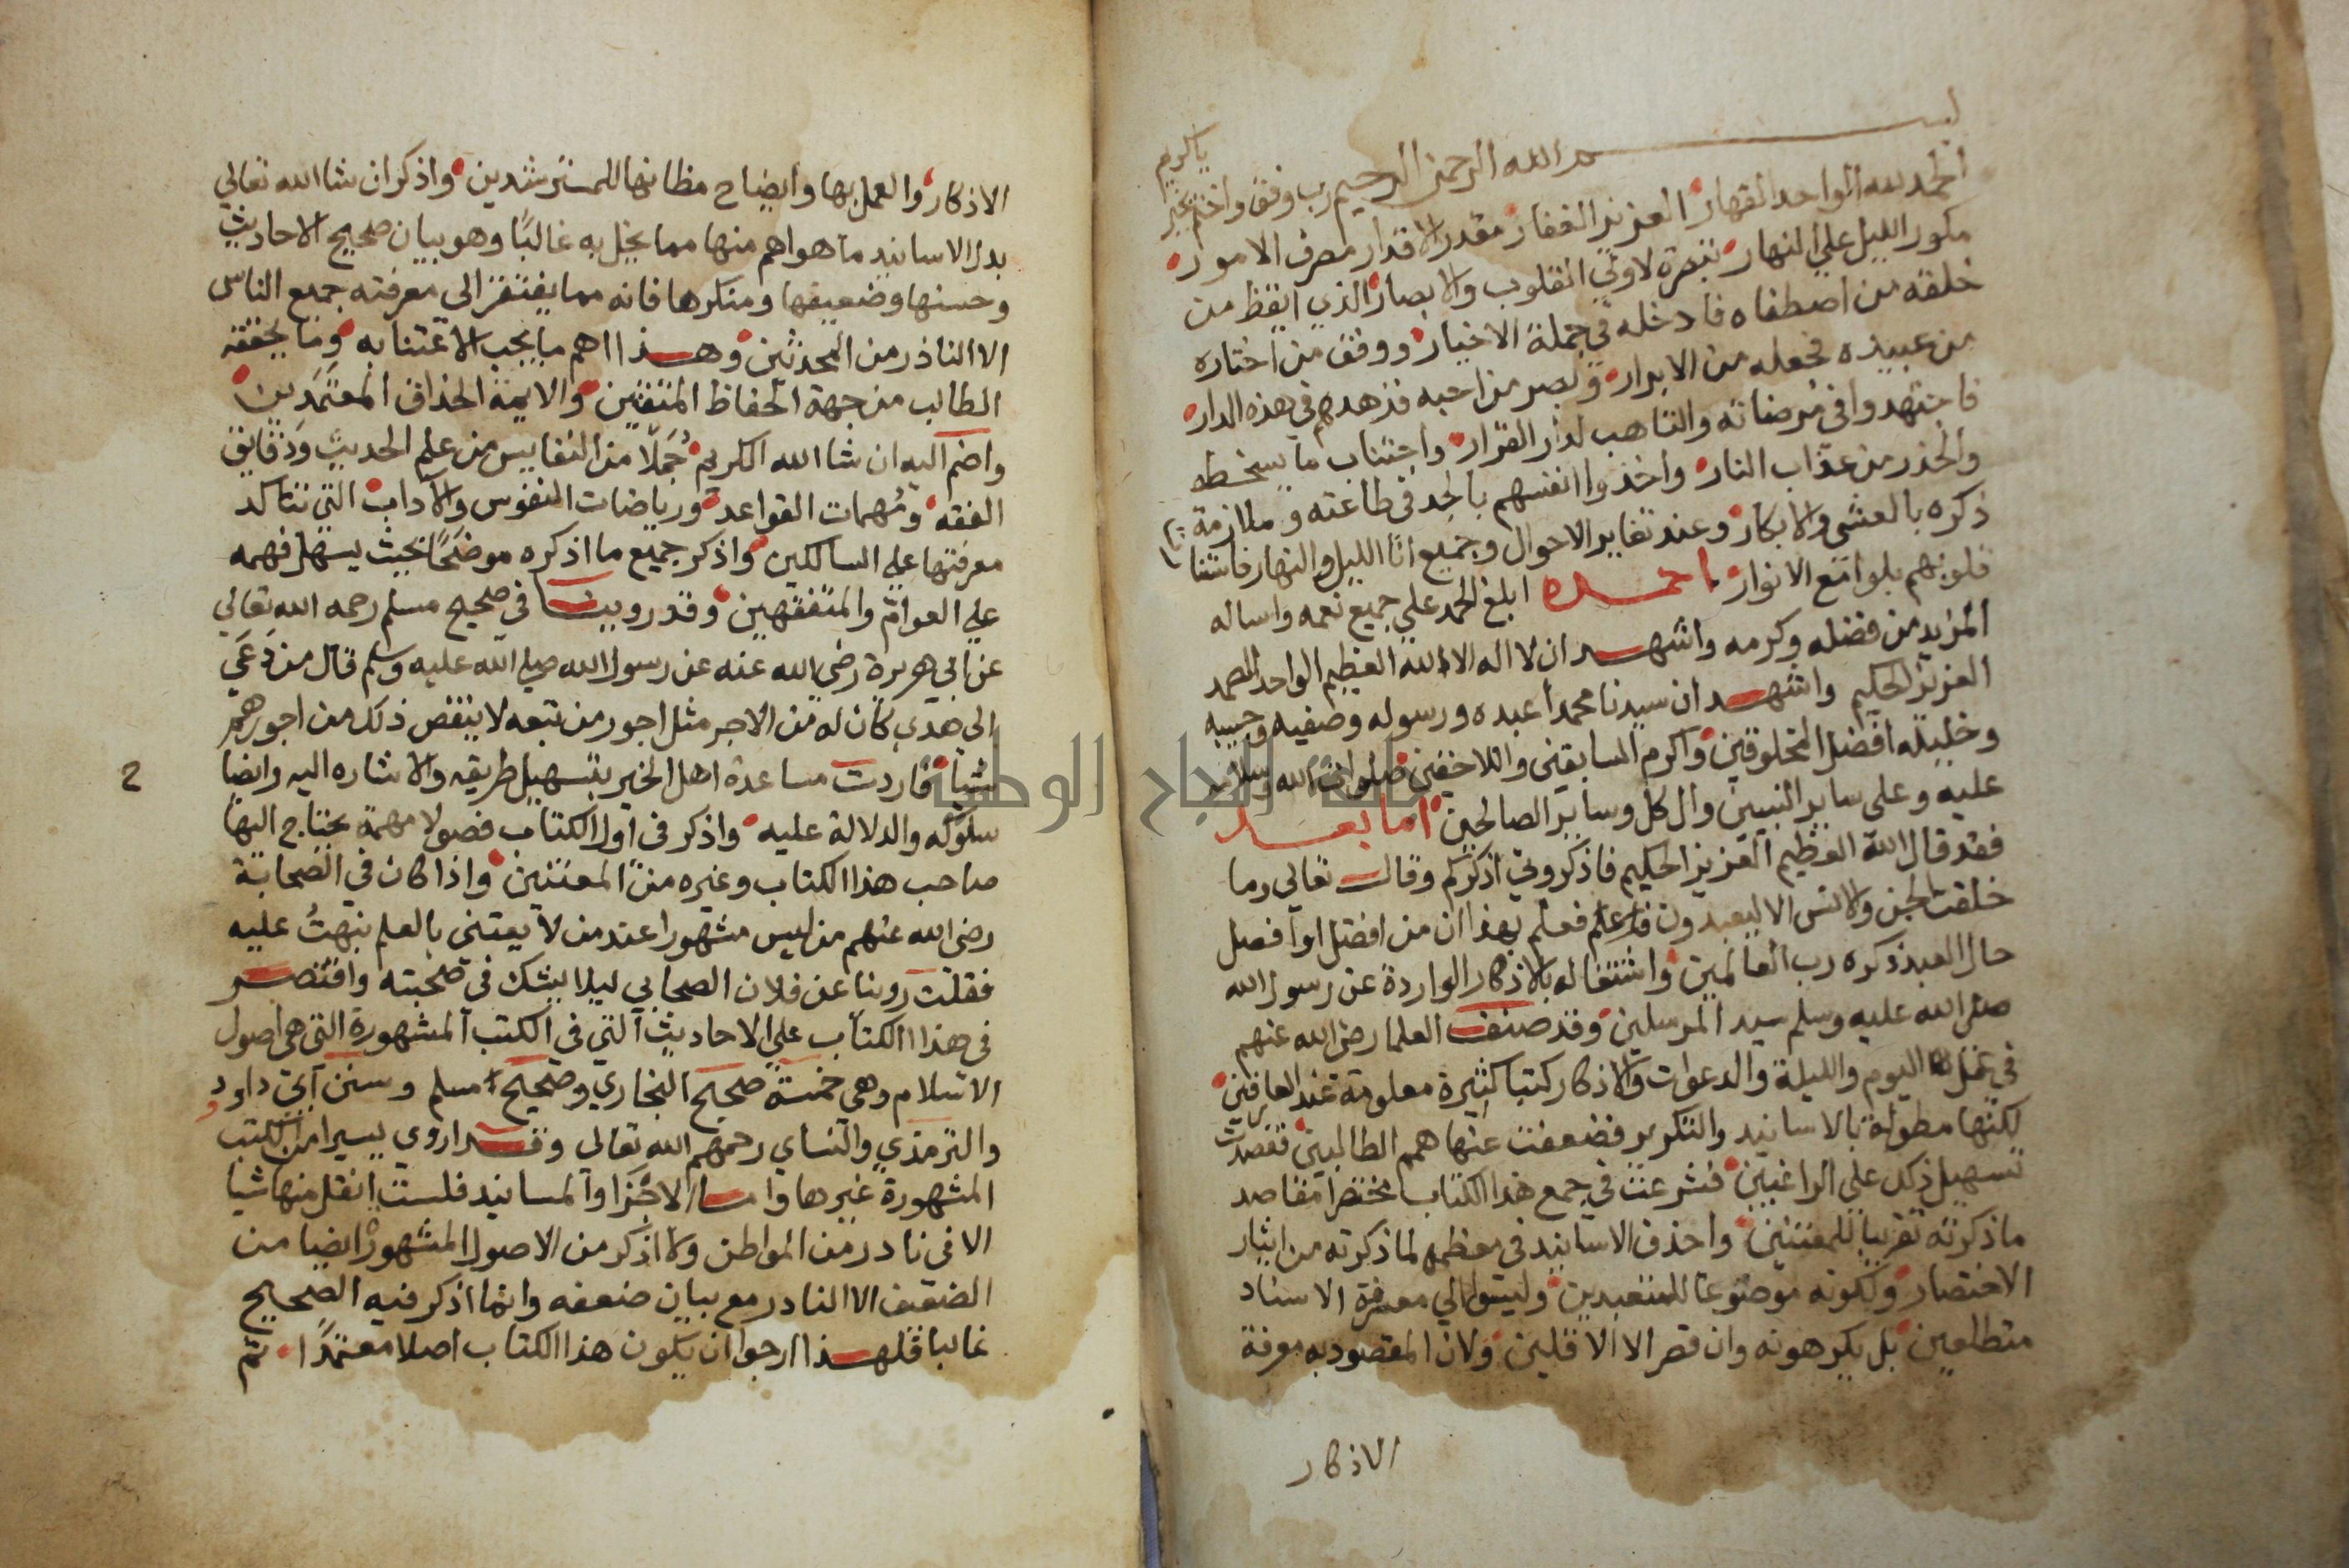 بسم الله الرحمن الرحيم رب وفق واختم بخير
يا كريم
الحمد لله الواحد القهار العزيز الغفار مقدر الاقدار مصرف الامور
مكور الليل علي النهار تبصرة لاولي القلوب والابصار الذي ايقظ من
خلقه من اصطفاه فادخله في جملة الاخيار ووفق من اختاره
من عبيده فجعله من الابرار وبصر من احبه فزهدهم في هذه الدار
فاجتهدوا في مرضاته والتاهب لدار القرار واجتناب ما يسخطه
والحذر من عذاب النار واخذوا انفسهم بالجد في طاعته وملازمة
ذكره بالعشي والابكار وعند تغاير الاحوال وجميع انا الليل والنهار فاستنا
قلوبهم بلوامع الانوار احمده ابلغ الحمد علي جميع نعمه واساله
المزيد من فضله وكرمه واشهد ان لا اله الا الله العظيم الواحد الصمد
العزيز الحكيم واشهد ان سيدنا محمدا عبده ورسوله وصفيه وحبيبه
وخليله افضل المخلوقين واكرم السابقين واللاحقين صلوات الله وسلامه
عليه وعلى ساير النبيين وال كل وساير الصالحين اما بعد
فقد قال الله العظيم العزيز الحكيم فاذكروني اذكركم وقالت تعالي وما
خلقت الجن والانس الا ليعبدون فعلم بهذا ان من افضل او افضل
حال العبد ذكره رب العالمين واشتغاله بالاذكار الواردة عن رسول الله
صلى الله عليه وسلم سيد المرسلين وقد صنف العلما رضي الله عنهم
في عمل اليوم والليلة والدعوات والاذكار كتبا كثيرة معلومة عند العارفين
لكنها مطولة بالاسانيد والتكرير فضعفت عنها همم الطالبين فقصدت
تسهيل ذلك على الراغبين فشرعت في جمع هذا الكتاب مختصرا مقاصد
ما ذكرته تقريبا للمعتنين واحذف الاسانيد في معظمه لما ذكرته من ايثار
الاختصار ولكونه موضوعا للمتعبدين وليسوا الي معرفة الاسناد
متطلعين بل يكرهونه وان قصر الا الاقلين ولان المقصود به معرفة
الاذكار
الاذكار والعمل بها وايضاح مظانها للمسترشدين واذكر ان شا الله تعالي
بدل الاسانيد ما هو اهم منها مما يخل به غالبا وهو بيان صحيح الاحاديث
وحسنها وضعيفها ومنكرها فانه مما يفتقر الى معرفته جميع الناس
الا النادر من المحدثين وهذا اهم ما يجب الاعتنا به وما يحققه
الطالب من جهة الحفاظ المتقنين والايمة الحذاق المعتمدين
واضم اليه ان شا الله الكريم جملا من النفايس من علم الحديث ودقايق
الفقه ومهمات القواعد ورياضات النفوس والاداب التي تتاكد
معرفتها علي السالكين واذكر جميع ما اذكره موضحا بحيث يسهل فهمه
علي العوام والمتفقهين وقد روينا في صحيح مسلم رحمه الله تعالي
عن ابي هريرة رضي الله عنه عن رسول الله صلي الله عليه وسلم قال من دعي
الى هدي كان له من الاجر مثل اجور من تبعه لا ينقص ذلك من اجورهم
شيا فاردت مساعدة اهل الخير بتسهيل طريقه والاشاره اليه وايضا
سلوكه والدلالة عليه واذكر في اول الكتاب فصولا مهمة يحتاج اليها
صاحب هذا الكتاب وغيره من المعتنين واذا كان في الصحابة
رضي الله عنهم من ليس مشهورا عند من لا يعتني بالعلم نبهت عليه
فقلت روينا عن فلان الصحابي ليلا يشك في صحبته واقتصر
في هذا الكتاب علي الاحاديث التي في الكتب المشهورة التي هي اصول
الاسلام وهي خمسة صحيح البخاري وصحيح مسلم وسنن ابي داود
والترمذي والنساي رحمهم الله تعالى وقد اروي يسيرا من الكتب
المشهورة غيرها واما الاجزا والمسانيد فلست انقل منها شيا
الا في نادر من المواطن ولا اذكر من الاصول المشهورة ايضا من
الضعيف الا النادر مع بيان ضعفه وانما اذكر فيه الصحيح
غالبا فلهذا ارجوا ان يكون هذا الكتاب اصلا معتمدا ثم
2